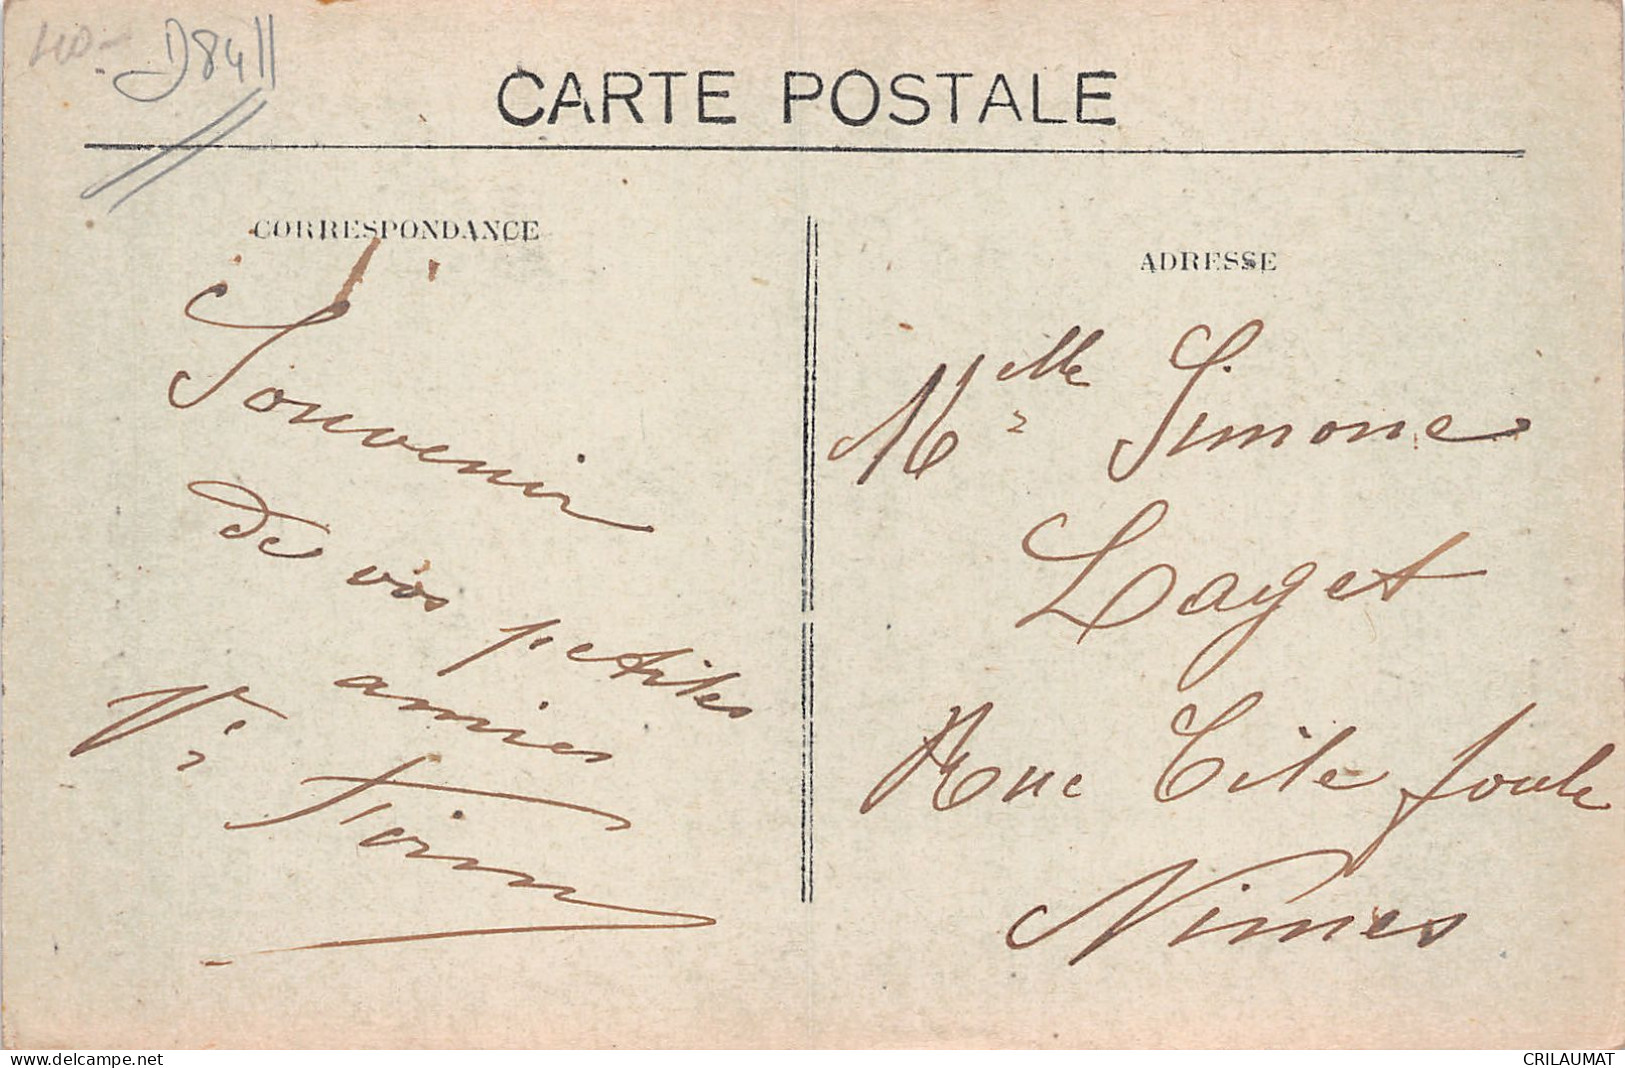 40-
D84
CARTE POSTALE
CORRESPONDANCE
Souvenir
de vos petites
amies
ADRESSE
Mlle Simone
Laget
Rue Cite foule
Nimes
www.delcampe.net
CRILAUMAT